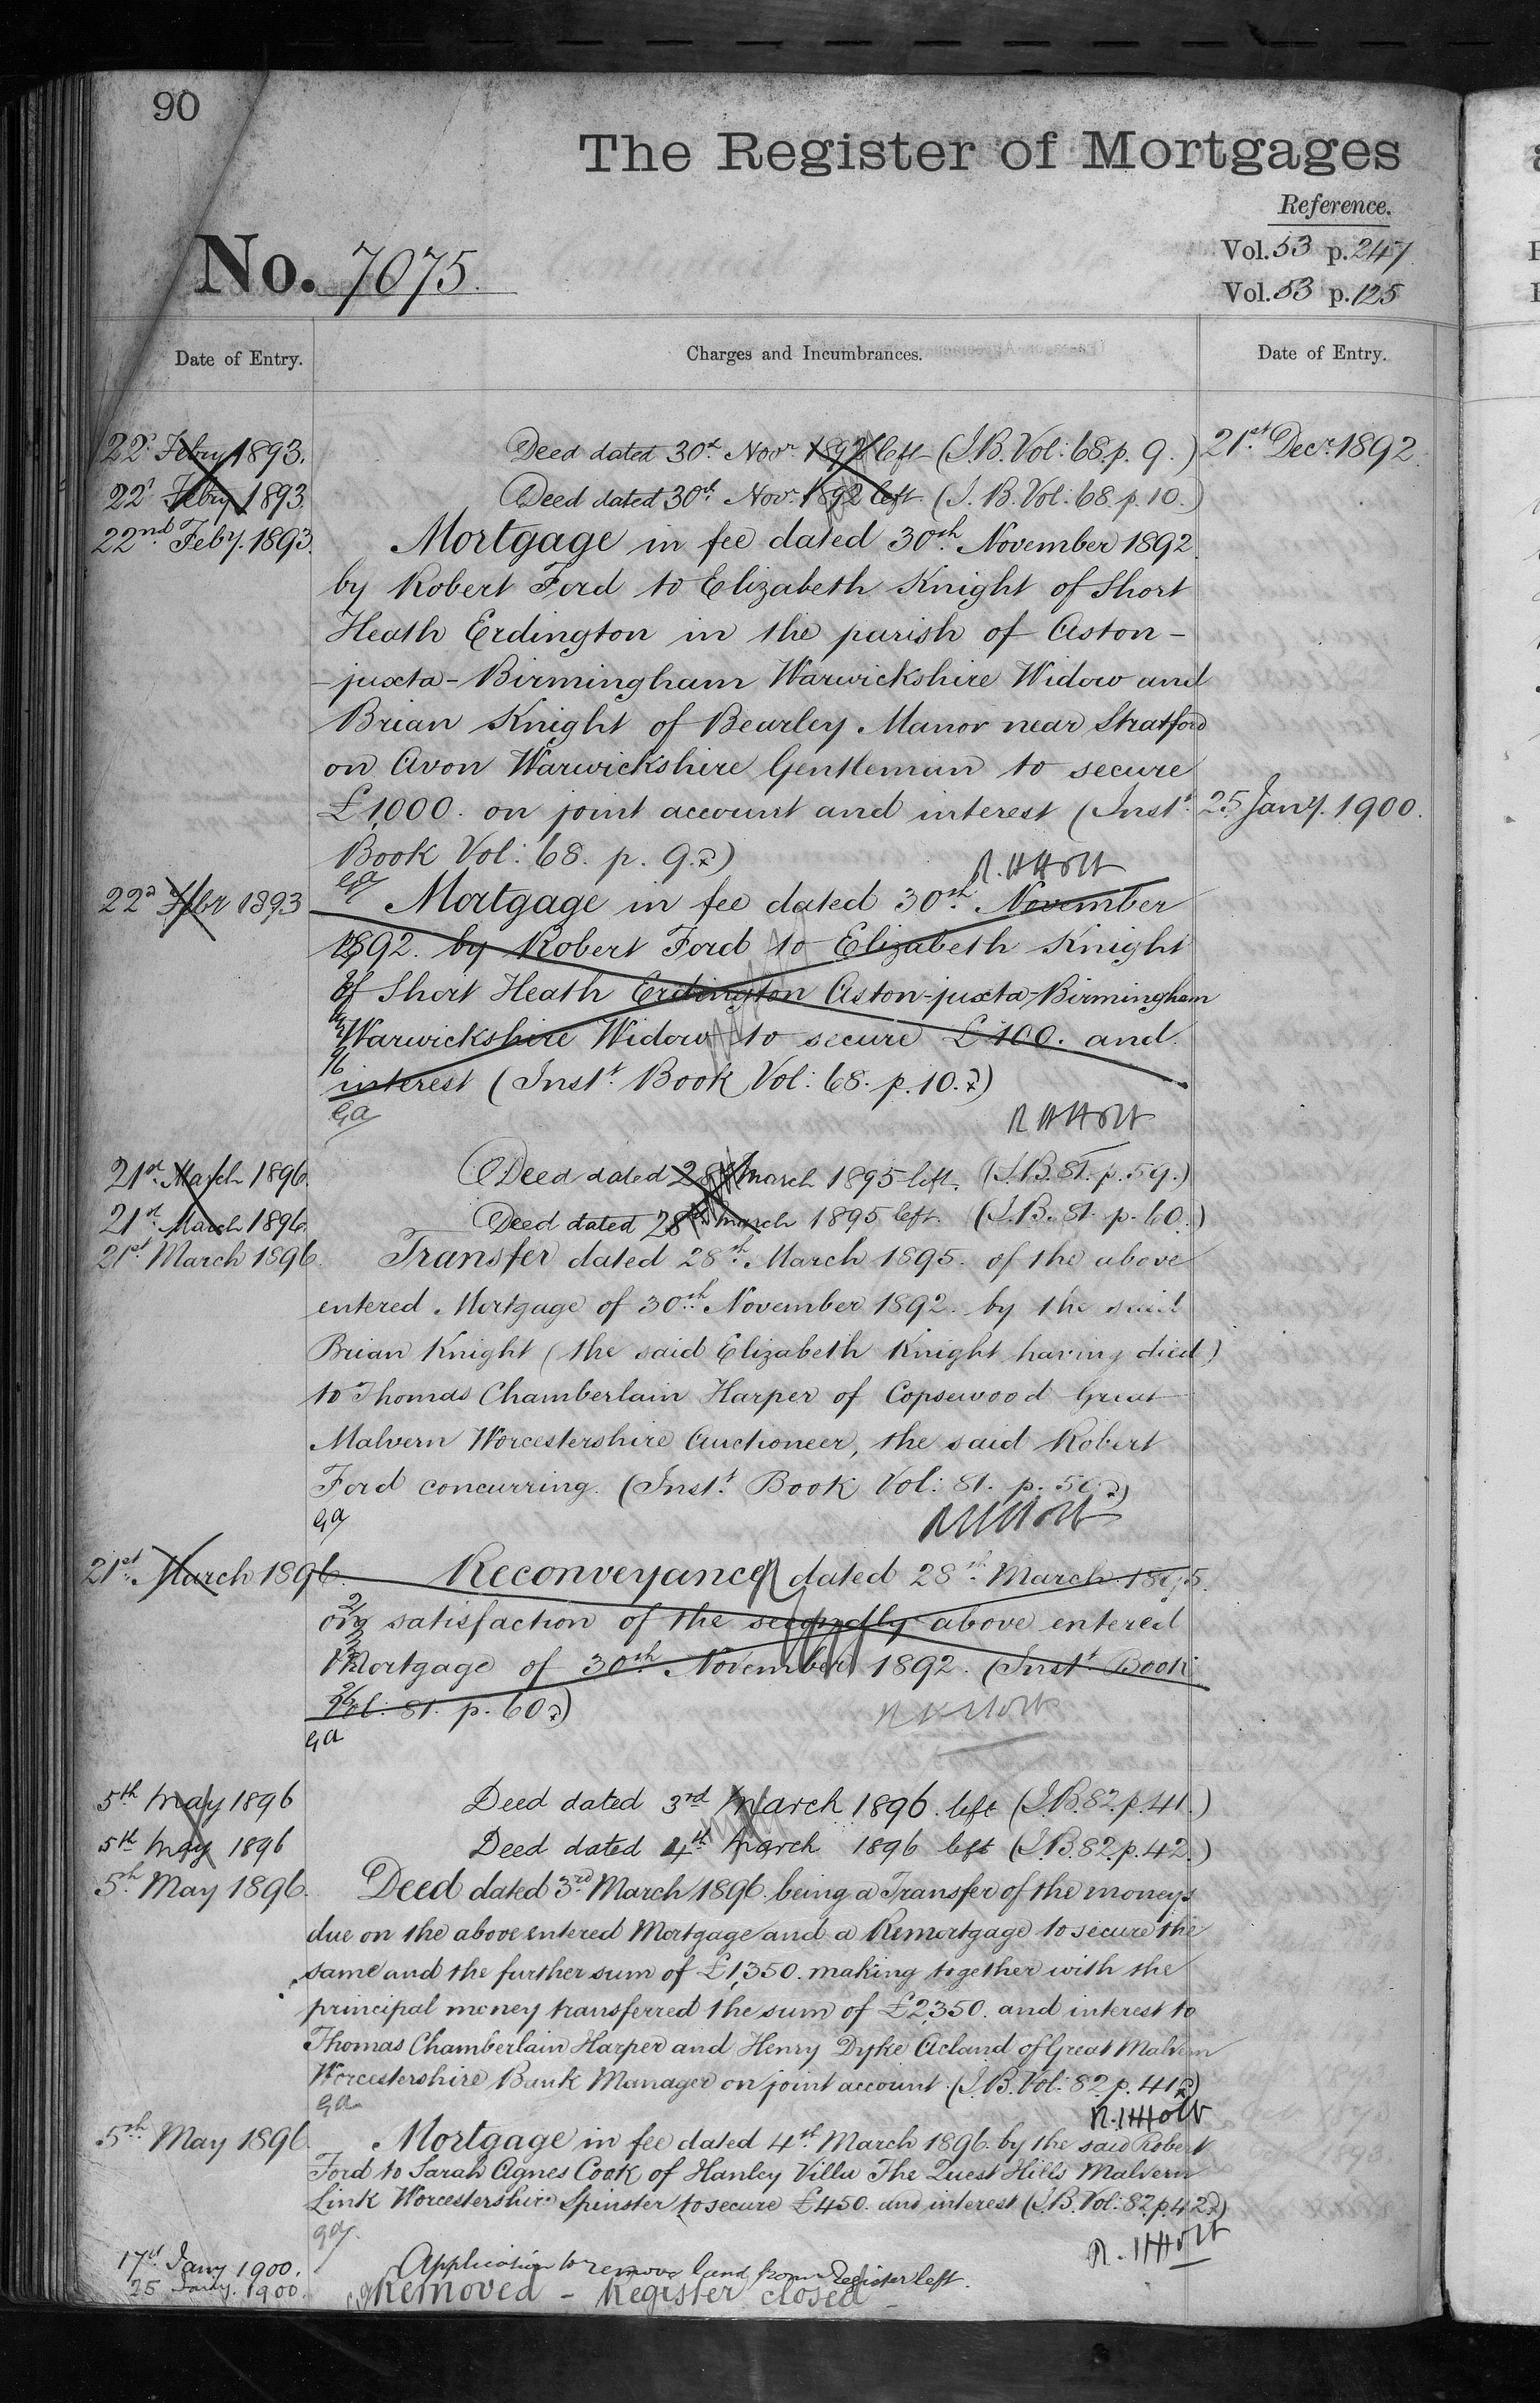 90
The Register of Mortgages
Reference.
No. 7075.
Vol. 53 p. 247
Vol. 53 p. 125
Date of Entry.
Charges and Incumbrances.
Date of Entry.
22d Febry 1893.
Deed dated 30th Novr 1892 left (I.B. Vol: 68. p. 9.)
21st Decr 1892.
22d Febry 1893.
Deed dated 30th Novr 1892 left (I.B. Vol: 68. p. 10.)
22nd Feby. 1893.
Mortgage in fee dated 30th November 1892.
by Robert Ford to Elizabeth Knight of Short
Heath Erdington in the parish of Aston-
-juxta-Birmingham Warwickshire Widow and
Brian Knight of Bearley Manor near Stratford
on Avon Warwickshire Gentleman to secure
£1,000. on joint account and interest (Inst.
25 Jany. 1900.
Book Vol: 68. p. 9.)
Ga
R.H.Holt
22d 1893
Mortgage in fee dated 30th November
1892. by Robert Ford to Elizabeth Knight
of Short Heath Erdington Aston-juxta-Birmingham
Warwickshire Widow to secure £100. and
interest (Inst. Book Vol: 68. p. 10.)
Ga
R H Holt
21st March 1896.
Deed dated 28th March 1895 left. (I.B. 81. p. 59.)
21st March 1896.
Deed dated 28th March 1895 left. (I.B. 81. p. 60.)
21st March 1896.
Transfer dated 28th March 1895. of the above
entered Mortgage of 30th November 1892. by the said
Brian Knight (the said Elizabeth Knight having died)
to Thomas Chamberlain Harper of Copsewood Great
Malvern Worcestershire Auctioneer, the said Robert
Ford concurring. (Inst. Book Vol: 81. p. 59.)
Ga
R H Holt
21st March 1896.
Reconveyance dated 28th March 1895.
on satisfaction of the secondly above entered
Mortgage of 30th November 1892. (Inst. Book
Vol: 81. p. 60.)
Ga
R H Holt
5th May 1896
Deed dated 3rd March 1896. left (I.B. 82. p. 41.)
5th May 1896
Deed dated 4th March 1896 left (I.B. 82. p. 42.)
5th May 1896.
Deed dated 3rd March 1896. being a Transfer of the moneys
due on the above entered Mortgage and a Remortgage to secure the
same and the further sum of £1,350. making together with the
principal money transferred the sum of £2,350. and interest to
Thomas Chamberlain Harper and Henry Dyke Acland of Great Malvern
Worcestershire Bank Manager on joint account. (I.B. Vol: 82. p. 41.)
Ga
R.H.Holt
5th May 1896.
Mortgage in fee dated 4th March 1896. by the said Robert
Ford to Sarah Agnes Cook of Hanley Villa The Quest Hills Malvern
Link Worcestershire Spinster to secure £450. and interest (I.B. Vol: 82. p. 42.)
Ga
R.H.Holt
17th Jany 1900.
Application to remove land from Register left.
25 Jany. 1900.
Removed - Register closed -